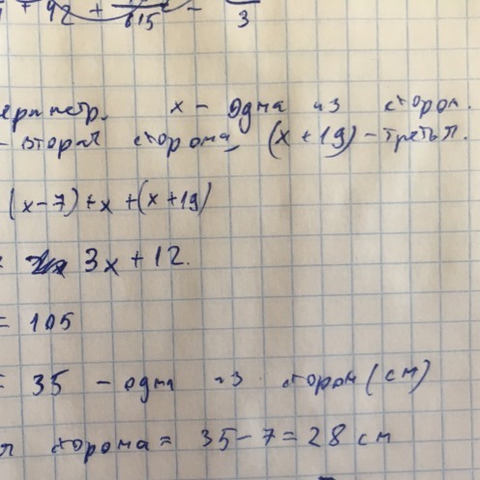 + 92 + /615 - /3
ериметр. x - одна из сторон.
- вторая сторона, (x + 19) - третья.
(x - 7) + x + (x + 19)
= 3x + 12.
= 105
= 35 - одна из сторон (см)
я сторона = 35 - 7 = 28 см